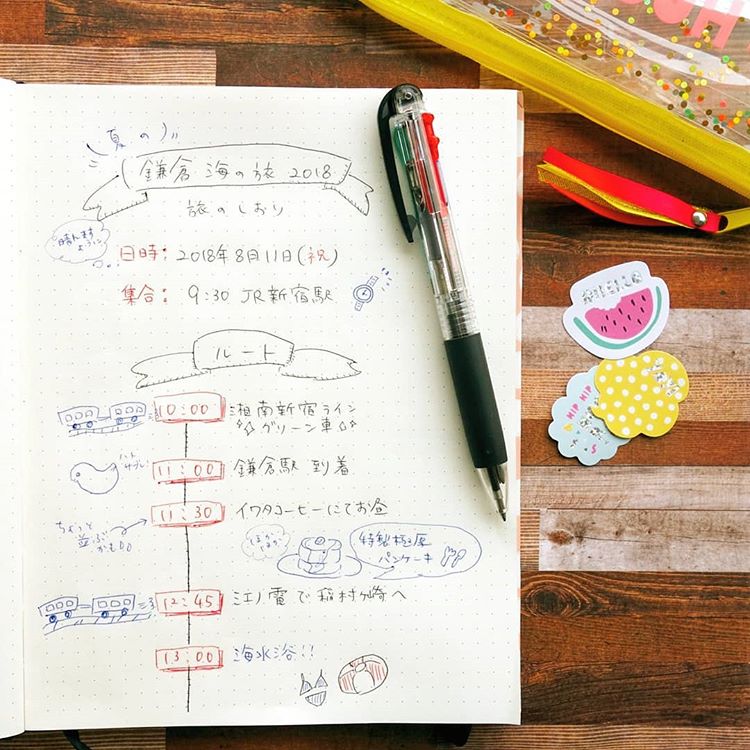 夏の
鎌倉 海の旅 2018
旅のしおり
晴れますように
日時: 2018年8月11日(祝)
集合: 9:30 JR新宿駅
ルート
10:00 湘南新宿ライン
グリーン車
11:00 鎌倉駅 到着
ハトサブレー!
11:30 イワタコーヒーにてお昼
ちょっと
並ぶ
かも
ほか
ほか
特製極厚
パンケーキ
12:45 江ノ電で稲村ヶ崎へ
13:00 海水浴!!
HIP HIP